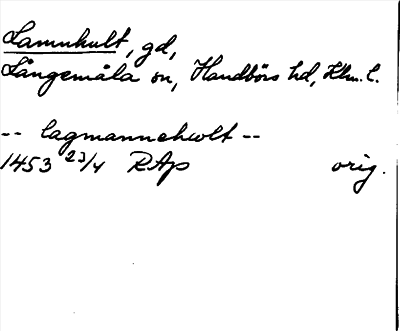 Lamnhult, gd,
Långemåla sn, Handbörs hd, Klm. l.
-- lagmannehwlt --
1453 23/4 RAp orig.